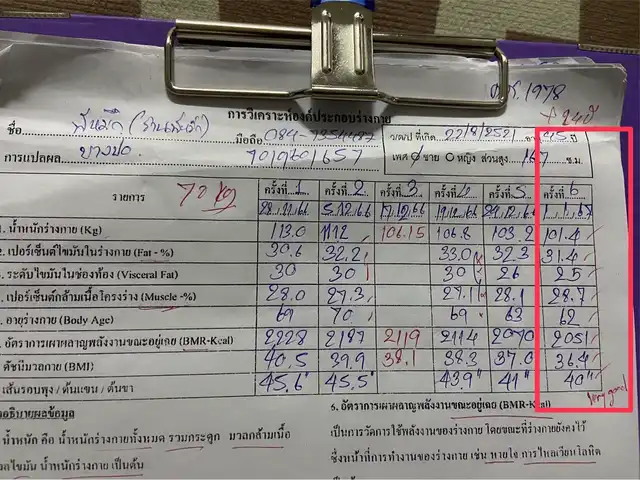 ค.ศ. 1978
+ 24 ปี
การวิเคราะห์องค์ประกอบร่างกาย
ชื่อ มือถือ 084-7354487 ว/ด/ป ที่เกิด 22/8/2521 อายุ 45 ปี
การแปลผล บางปอ 7019601657 เพศ ชาย หญิง ส่วนสูง 167 ซ.ม.
รายการ 72 kg ครั้งที่ 1 ครั้งที่ 2 ครั้งที่ 3 ครั้งที่ 4 ครั้งที่ 5 ครั้งที่ 6
28.11.66 5.12.66 17.12.66 19.12.66 1.1.67
1. น้ำหนักร่างกาย (Kg) 113.0 111.2 106.15 106.8 103.2 101.4
2. เปอร์เซ็นต์ไขมันในร่างกาย (Fat - %) 30.6 32.2 33.0 32.3 31.4
. ระดับไขมันในช่องท้อง (Visceral Fat) 30 30 30 26 25
. เปอร์เซ็นต์กล้ามเนื้อโครงร่าง (Muscle -%) 28.0 27.3 27.1 28.1 28.7
. อายุร่างกาย (Body Age) 69 70 69 63 62
. อัตราการเผาผลาญพลังงานขณะอยู่เฉย (BMR-Kcal) 2228 2187 2119 2114 2070 2051
ดัชนีมวลกาย (BMI) 40.5 39.9 38.1 38.3 37.0 36.4
เส้นรอบพุง / ต้นแขน / ต้นขา 45.6" 45.5" 43.9" 41" 40"
Very good
อธิบายผลข้อมูล
น้ำหนัก คือ น้ำหนักร่างกายทั้งหมด รวมกระดูก มวลกล้ามเนื้อ
ลไขมัน น้ำหนักร่างกาย เป็นต้น
6. อัตราการเผาผลาญพลังงานขณะอยู่เฉย (BMR-Kcal)
เป็นการวัดการใช้พลังงานของร่างกาย โดยขณะที่ร่างกายยังคงไว้
ซึ่งหน้าที่การทำงานของร่างกาย เช่น หายใจ การไหลเวียนโลหิต